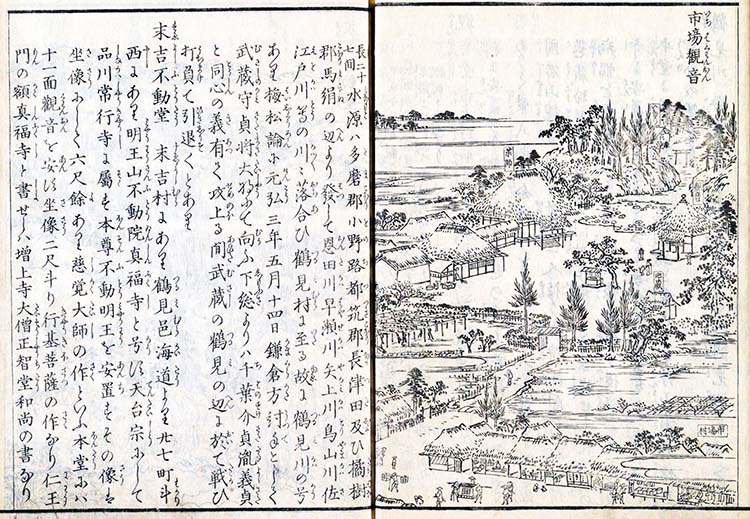 市場観音
本堂
市場村
長二十七間
水源ハ多磨郡小野路都筑郡長津田及ひ橘樹
郡馬絹の辺より發して恩田川早瀬川矢上川鳥山川佐
江戸川等の川々落合ひ鶴見村に至る故に鶴見川の号
あり梅松論に元弘三年五月十四日鎌倉方討手として
武蔵守貞将大将にて向ふ下総よりハ千葉介貞胤義貞
と同心の義有て攻上る間武蔵の鶴見の辺に於て戦ひ
打負て引退くとあり
末吉不動堂 末吉村にあり鶴見邑海道より廿七町斗
西にあり明王山不動院真福寺と号す天台宗にして
品川常行寺に屬す本尊不動明王を安置もその像ハ
坐像にして六尺餘あり慈覚大師の作といふ本堂にハ
十一面觀音を安す坐像二尺斗り行基菩薩の作なり仁王
門の額真福寺と書せしハ増上寺大僧正智堂和尚の書なり